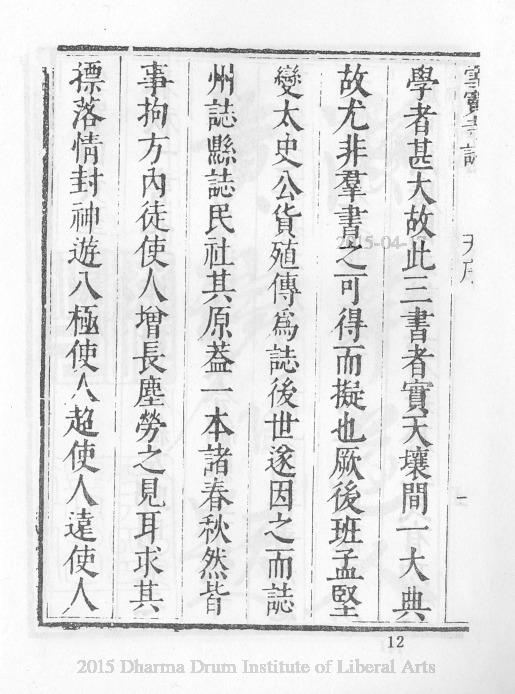 學者甚大故此三書者實天壤間一大典
故尤非羣書之可得而擬也厥後班孟堅
變太史公貨殖傳爲誌後世遂因之而誌
州誌縣誌民社其原葢一本諸春秋然皆
事拘方內徒使人增長塵勞之見耳求其
褾落情封神遊八極使人超使人達使人
12
2015 Dharma Drum Institute of Liberal Arts